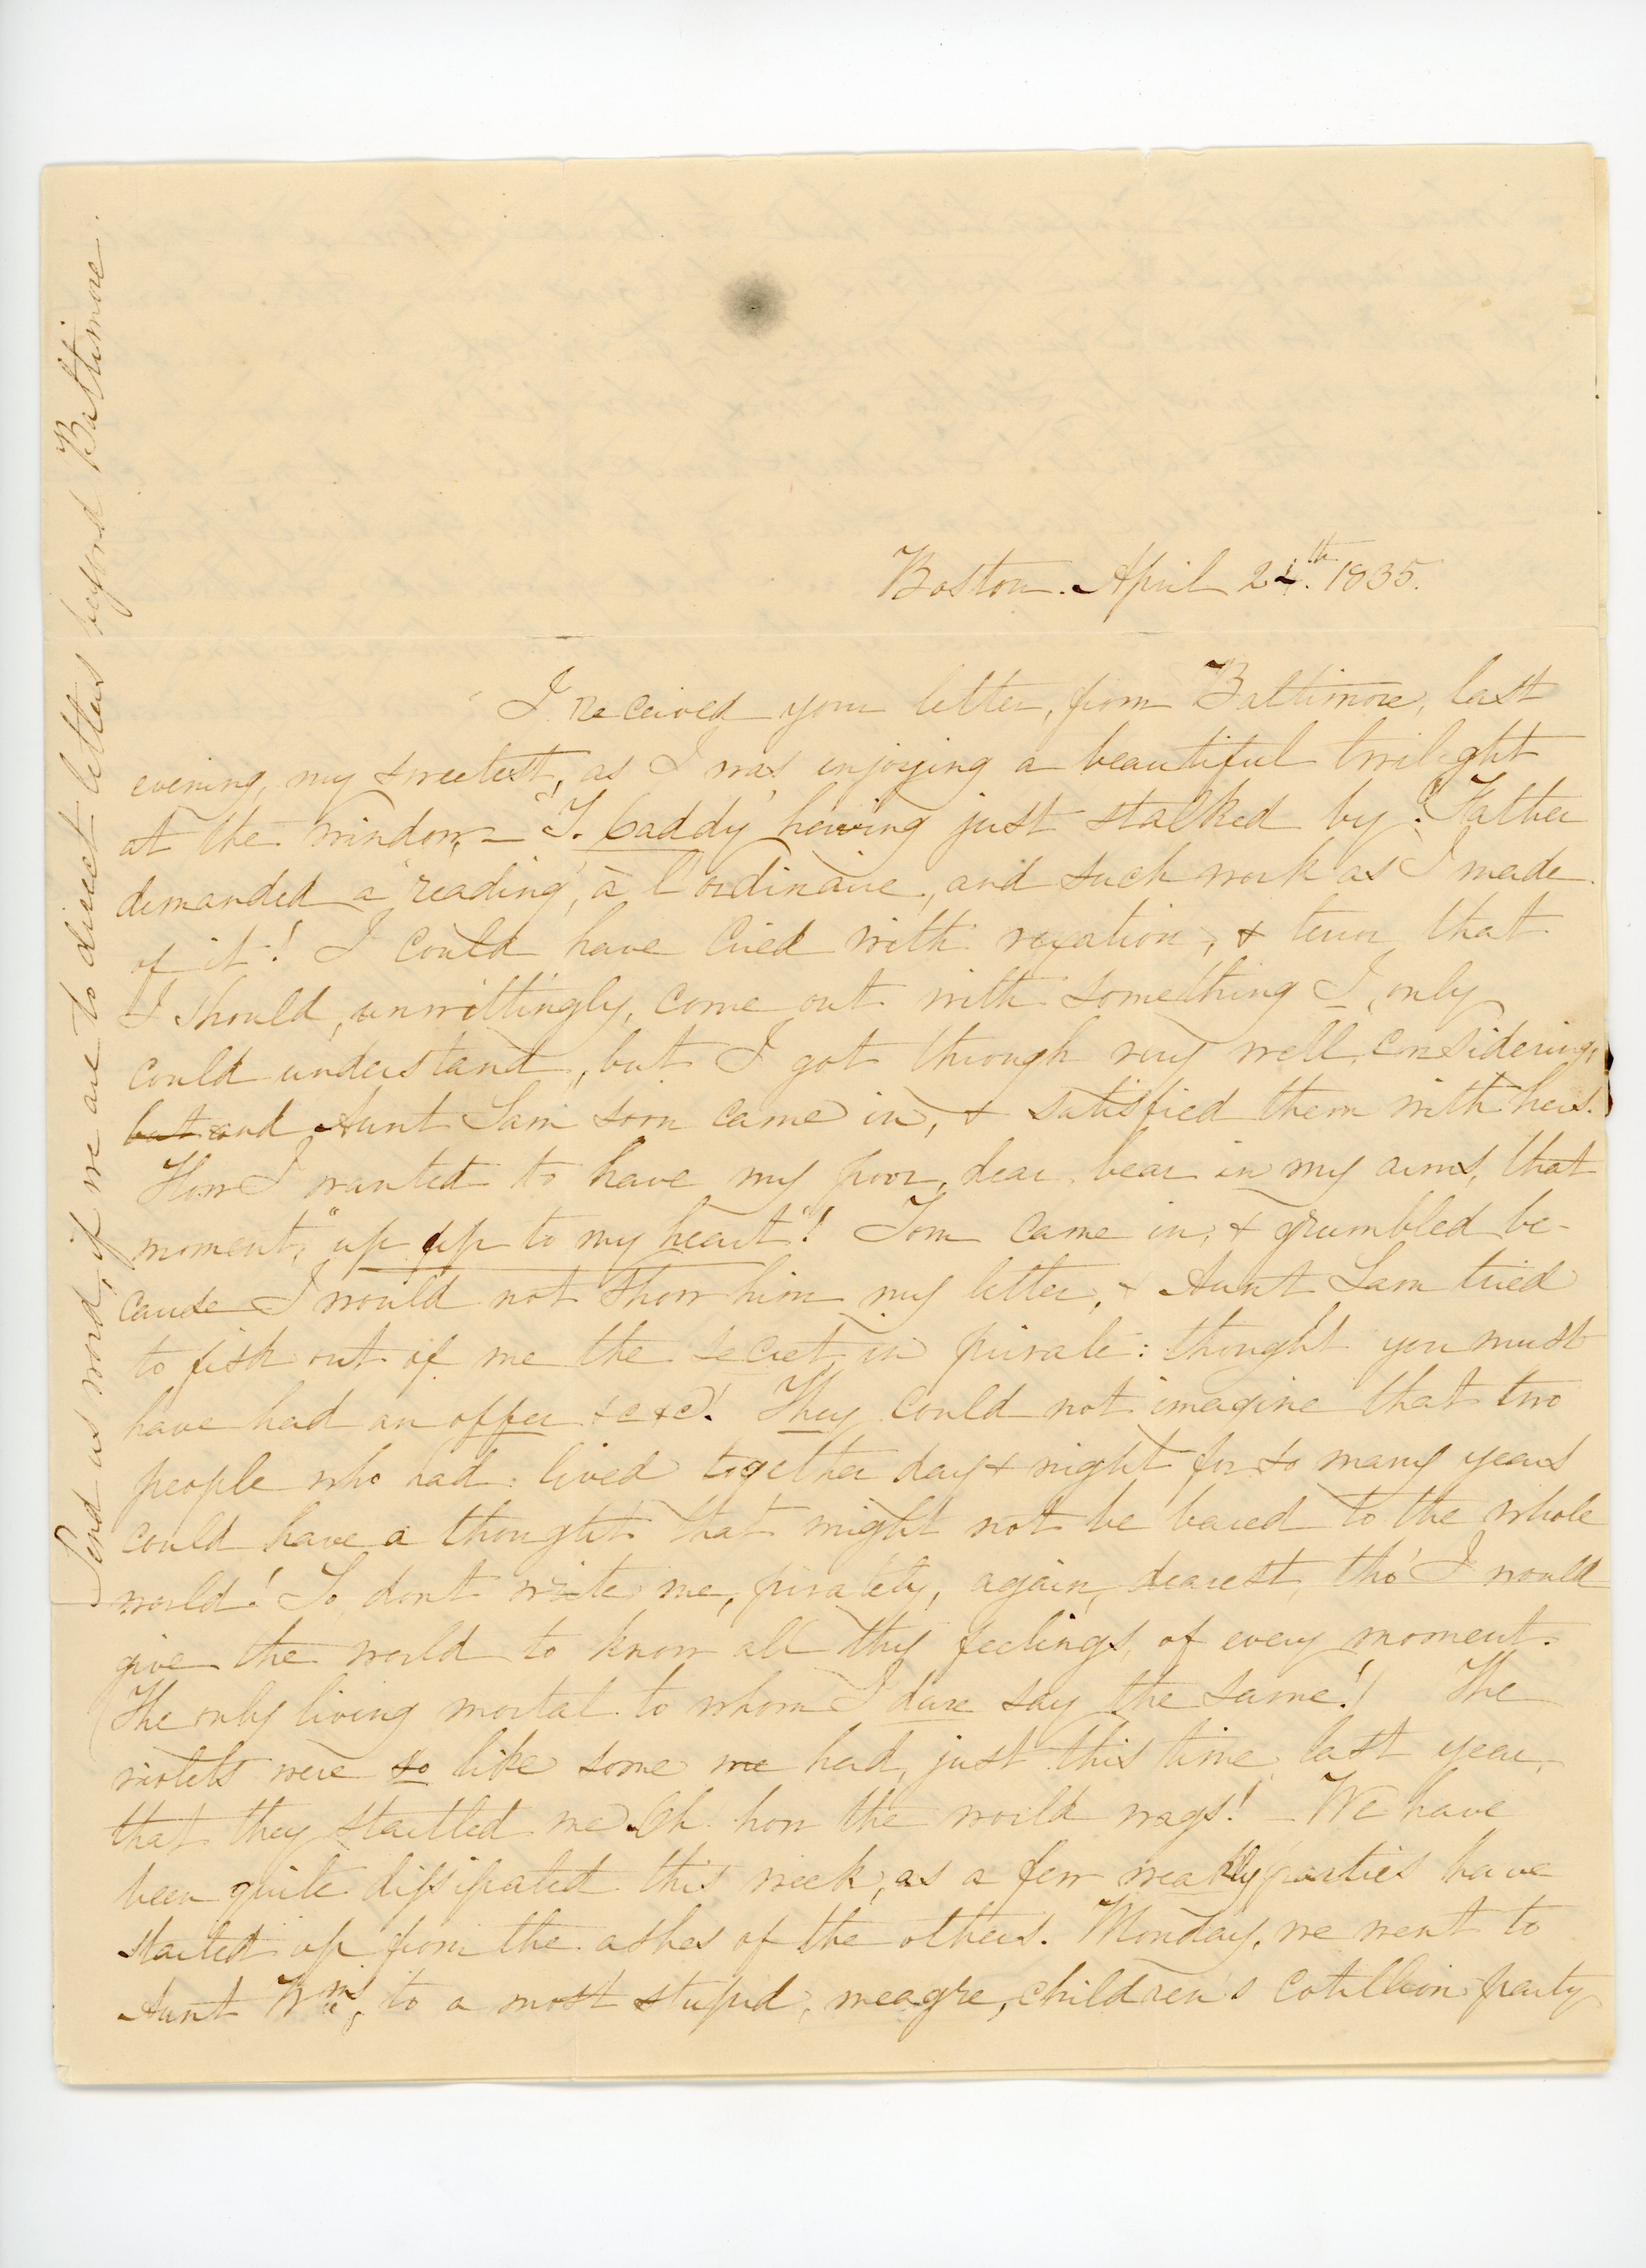 Boston. April 24th. 1835.
I received your letter, from Baltimore, last
evening, my sweetest, as I was enjoying a beautiful twilight
at the window, – "T. Caddy" having just stalked by. Father
demanded a "reading", à l'ordinaire, and such work as I made
of it! I could have cried with vexation, & terror that
I should, unwittingly, come out with something I, only
could understand, but I got through very well, considering,
but and Aunt Sam soon came in, & satisfied them with hers.
How I wanted to have my poor, dear, bear in my arms, that
moment, "up up to my heart"! Tom came in, & grumbled be-
cause I would not show him my letter, & Aunt Sam tried
to fish out of me the secret in private: thought you must
have had an offer &c &c! They could not imagine that two
people who had lived together day & night for so many years
could have a thought that might not be bared to the whole
world! So dont write me, privately, again, dearest, tho' I would
give the world to know all thy feelings, of every moment.
(The only living mortal to whom I dare say the same!) The
violets were so like some we had, just this time last year,
that they startled me. Oh how the world wags! – We have
been quite dissipated this week, as a few weakly parties have
started up from the ashes of the others. Monday, we went to
Aunt Wm's, to a most stupid, meagre, children's cotillion party
Send us word, if we are to direct letters beyond Baltimore.